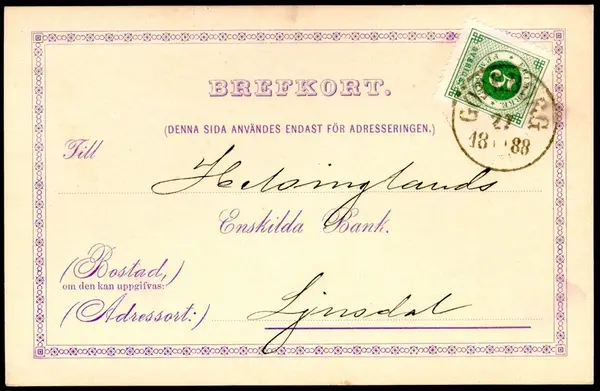 BREFKORT.
(DENNA SIDA ANVÄNDES ENDAST FÖR ADRESSERINGEN.)
Till
Helsinglands
Enskilda Bank.
(Bostad,)
om den kan uppgifvas:
(Adressort:)
Ljusdal
5
27
18 88